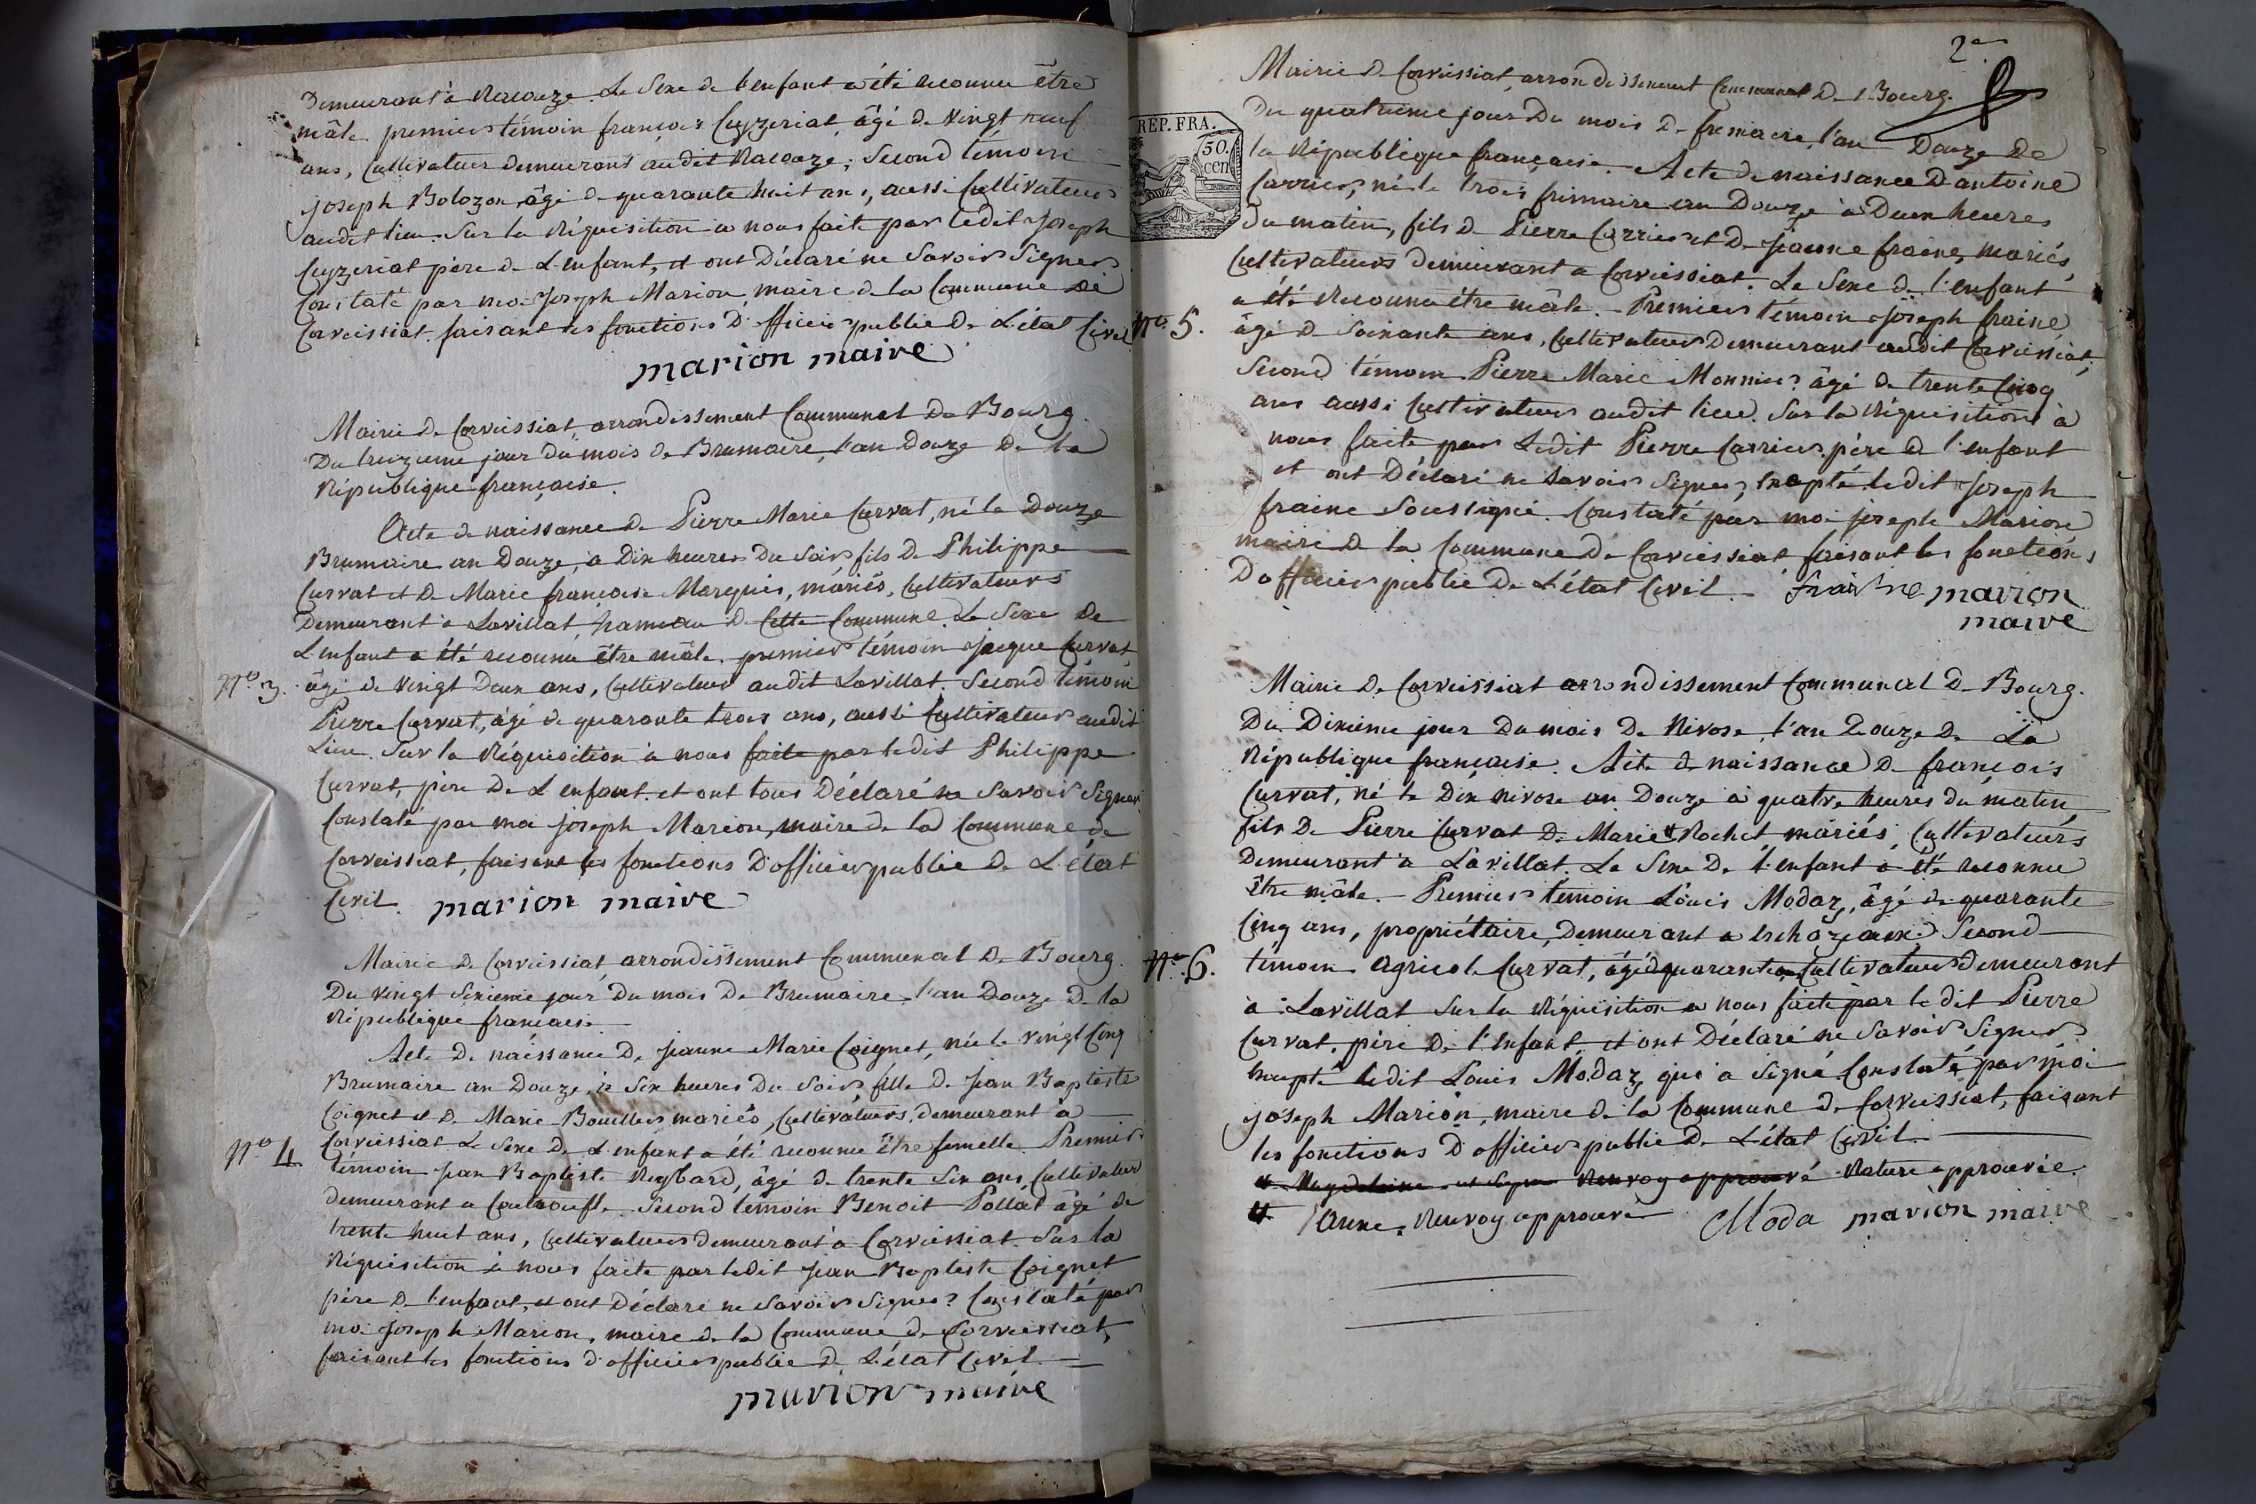 Demeurant à Racouze. Le Sexe de l'enfant a été reconnu être
mâle. premier témoin françois Cuyzeriat, âgé de Vingt neuf
ans, Cultivateur demeurant audit Racouze; Second témoin
joseph Bolozon, âgé de quarante huit ans, aussi Cultivateur
audit lieu. Sur la Réquisition à nous faite par ledit Joseph
Cuyzeriat père de L'enfant, et ont Déclaré ne Savoir Signer
Constaté par moi Joseph Marion, maire de la Commune de
Corveissiat. faisant les fonctions D'officier public De L'état Civil
marion maire
Mairie de Corveissiat, arrondissement Communal De Bourg.
Du treizieme jour du mois de Brumaire, l'an Douze De la
République française.
Acte de naissance de Pierre Marie Curvat, né le Douze
Brumaire an Douze, à Dix heures Du Soir, fils De Philippe
Curvat et De Marie françoise Marquis, mariés, Cultivateurs
Demeurant à Lavillat, hameau de Cette Commune. Le Sexe De
L'enfant a été reconnu être mâle. premier témoin Jacque Curvat,
N.º 3. âgé de Vingt Deux ans, Cultivateur audit Lavillat. Second témoin
Pierre Curvat, âgé de quarante trois ans, aussi Cultivateur audit
Lieu. Sur la Réquisition à nous faite par ledit Philippe
Curvat, père De L'enfant. et ont tous Déclaré ne Savoir Signer
Constaté par moi Joseph Marion, maire de la Commune de
Corveissiat, faisant les fonctions D'officier public De L'état
Civil. marion maire
Mairie De Corveissiat, arrondissement Communal De Bourg.
Du Vingt Sixieme jour Du mois De Brumaire, l'an Douze De la
République française.
Acte De naissance De Jeanne Marie Coignet, née le Vingt Cinq
Brumaire an Douze, à Six heures Du Soir, fille De Jean Baptiste
Coignet et De Marie Bouiller mariés, Cultivateurs, demeurant à
Corveissiat. Le Sexe De L'enfant a été reconnu être femelle. Premier
N.º 4. témoin Jean Baptiste Reybard, âgé de trente Six ans, Cultivateur
demeurant à . Second témoin Benoit Pollat âgé de
trente huit ans, Cultivateur demeurant à Corveissiat. Sur la
Réquisition à nous faite par ledit Jean Baptiste Coignet
père De l'enfant, et ont Déclaré ne Savoir Signer. Constaté par
moi Joseph Marion, maire de la Commune de Corveissiat,
faisant les fonctions d'officier public De L'état Civil.
marion maire
2e
REP. FRA.
50. cen
Mairie De Corveissiat, arrondissement Communal De Bourg.
Du quatrieme jour Du mois De frimaire, l'an Douze De
la République française. Acte de naissance D'antoine
Carrier, né le trois frimaire an Douze à Deux heures
Du matin, fils De Pierre Carrier et De Jeanne fraine, mariés,
Cultivateurs demeurant à Corveissiat. Le Sexe De l'enfant
a été Reconnu être mâle. Premier témoin Joseph fraine
N.º 5. âgé De Soixante ans, Cultivateur Demeurant audit Corveissiat,
Second témoin Pierre Marie Monnier âgé de trente Cinq
ans aussi Cultivateur audit lieu. Sur la Réquisition à
nous faite par Ledit Pierre Carrier père De l'enfant
et ont Déclaré ne Savoir Signer, Excepté ledit Joseph
fraine Soussigné. Constaté par moi joseph Marion
maire De la Commune De Corveissiat faisant les fonctions
D'officier public De L'état Civil. fraine marion
maire
Mairie De Corveissiat arrondissement Communal De Bourg.
Du Dixieme jour Du mois De Nivose, l'an Douze De La
République française. Acte de naissance De françois
Curvat, né le Dix nivose an Douze à quatre heures du matin
fils De Pierre Curvat De Marie Rochet mariés, Cultivateurs
Demeurant à Lavillat. Le Sexe De l'enfant a été reconnu
être mâle. Premier témoin Louis Modaz, âgé de quarante
Cinq ans, propriétaire, Demeurant à Eschazeaux. Second
N.º 6. témoin Agricole Curvat, âgé de quarante ans, Cultivateur Demeurant
à Lavillat Sur la Réquisition à nous faite par le dit Pierre
Curvat, père De l'Enfant et ont Déclaré ne Savoir Signer
Excepté ledit Louis Modaz, qui a Signé. Constaté par moi
joseph Marion, maire de la Commune De Corveissiat, faisant
les fonctions D'officier public De L'état Civil.
Magdelaine Renvoy approuvé Rature approuvée.
# Anne. Renvoy approuvé Moda marion maire